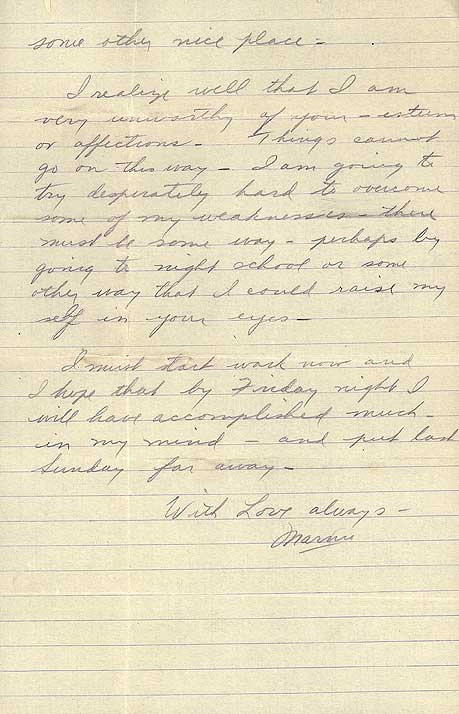 some other nice place -
I realize well that I am
very unworthy of your - esteem
or affections - Things cannot
go on this way - I am going to
try desperately hard to overcome
some of my weaknesses - there
must be some way - perhaps by
going to night school or some
other way that I could raise my
self in your eyes -
I must start work now and
I hope that by Friday night I
will have accomplished much -
in my mind - and put last
Sunday far away -
With Love always -
Marnie